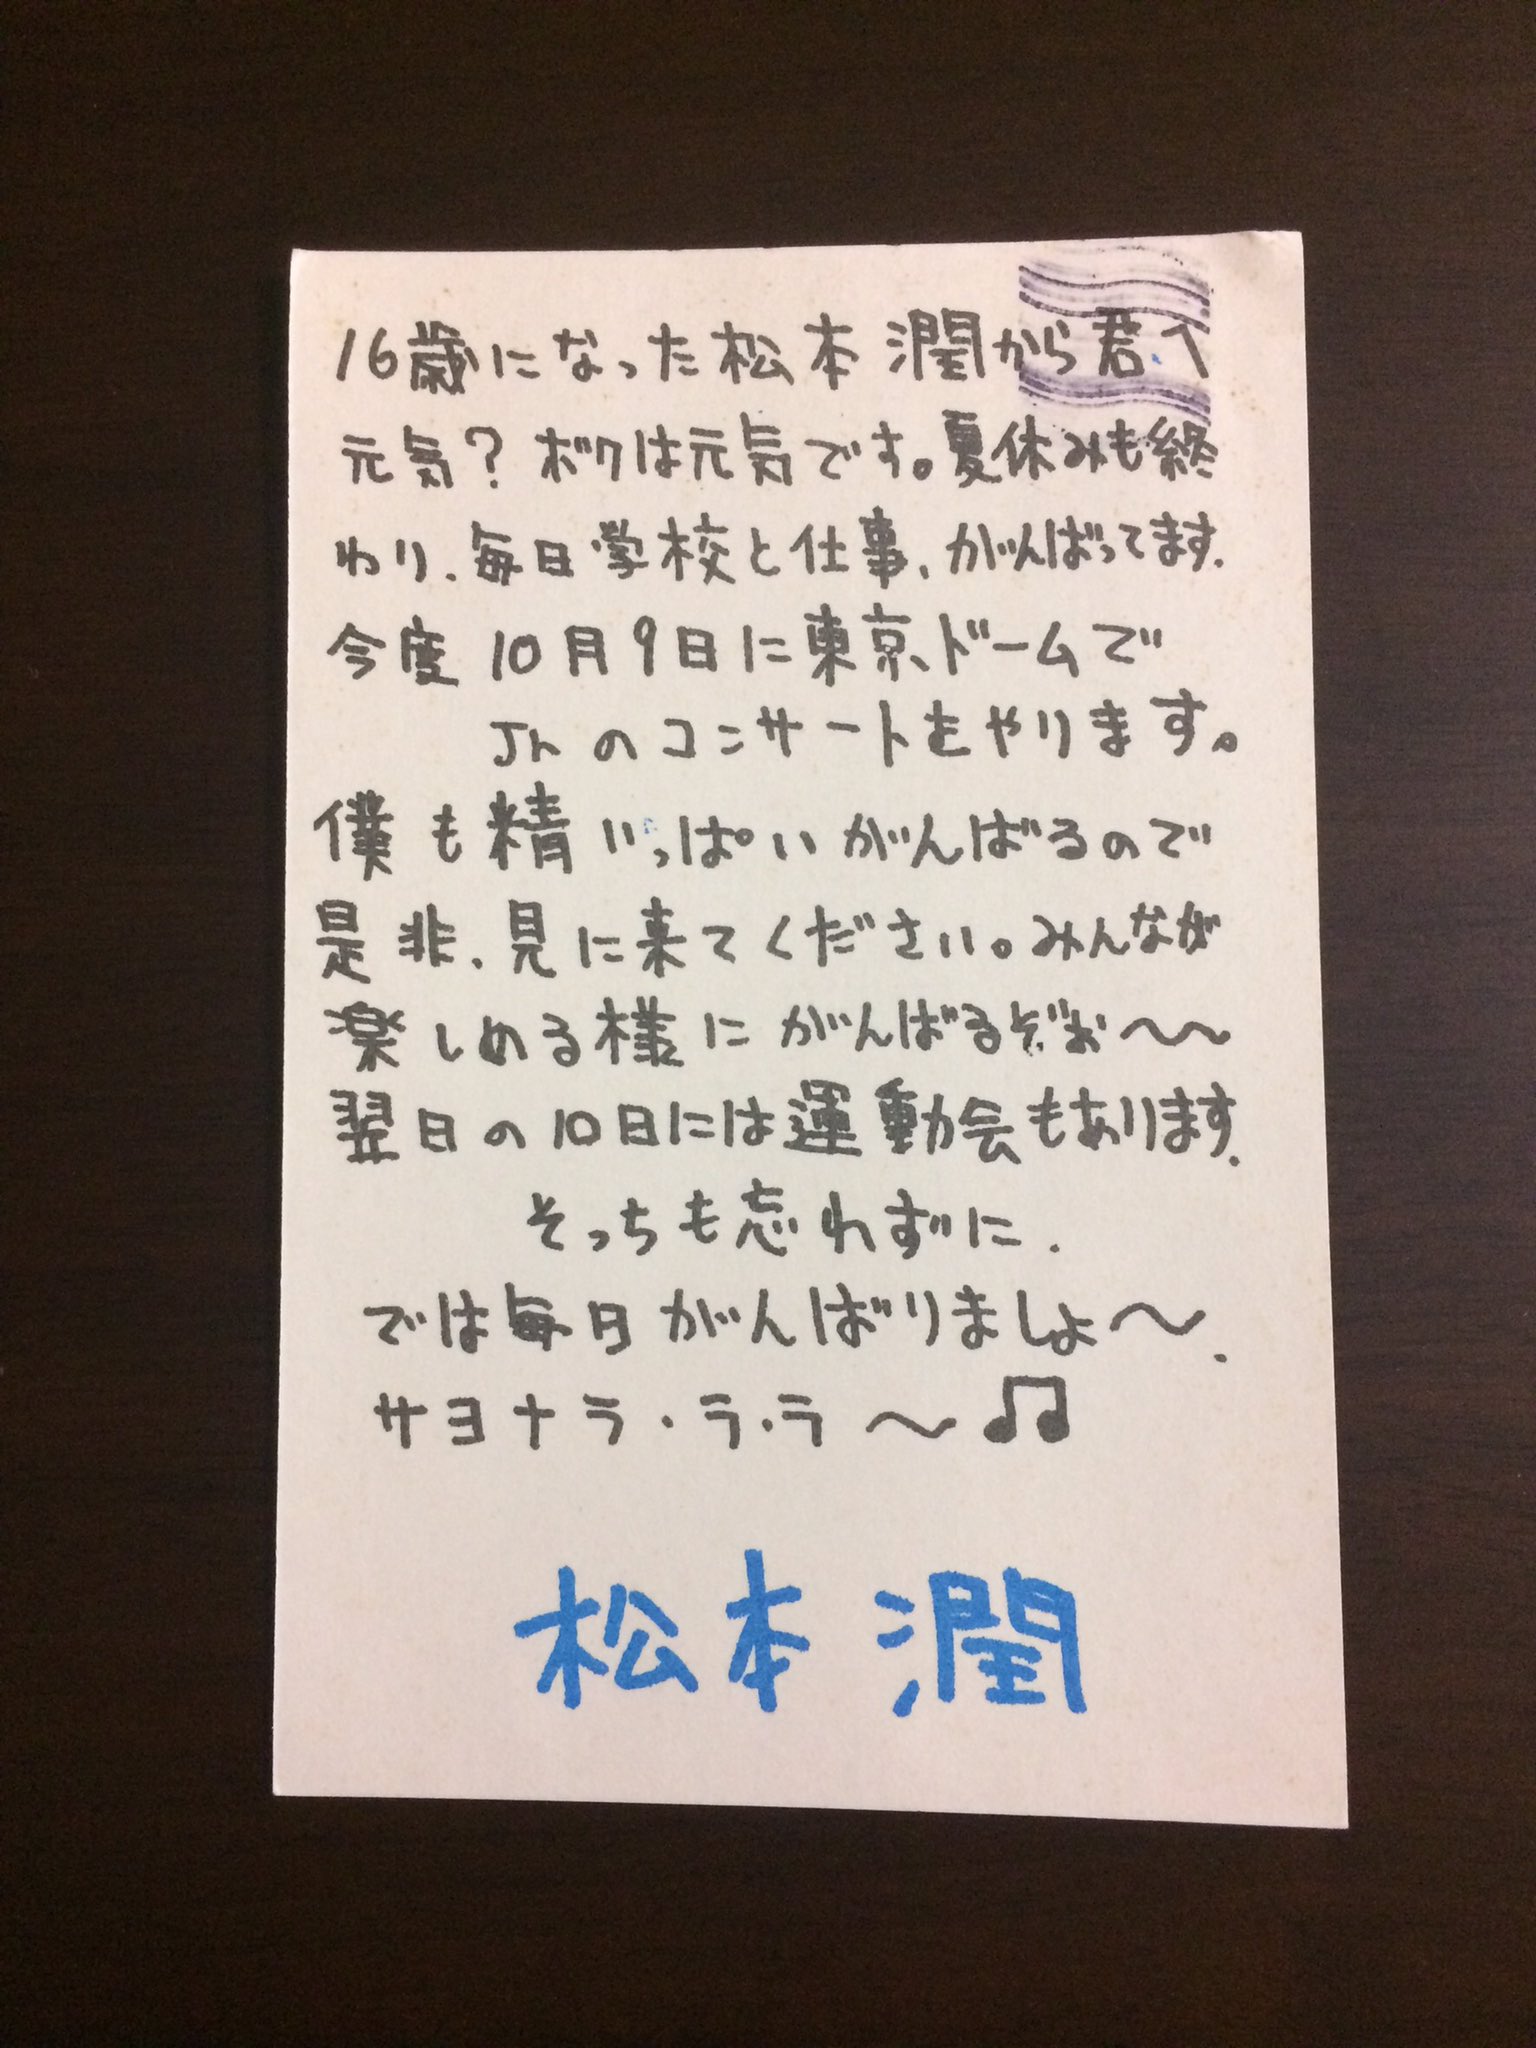 16歳になった松本 潤から君へ
元気？ボクは元気です。夏休みも終
わり、毎日学校と仕事、がんばってます.
今度 10月9日に東京ドームで
Jrのコンサートをやります。
僕も精いっぱいがんばるので
是非、見に来てください。みんなが
楽しめる様にがんばるぞぉ〜〜
翌日の10日には運動会もあります.
そっちも忘れずに.
では毎日がんばりましょ〜.
サヨナラ・ラ・ラ〜♫
松本 潤